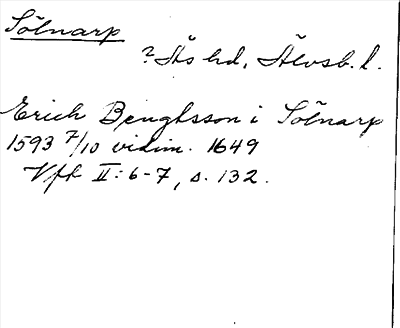 Sölnarp
? Ås hd, Älvsb. l.
Erich Bengtsson i Sölnarp
1593 7/10 vidim. 1649
Vfl II: 6-7, s. 132.